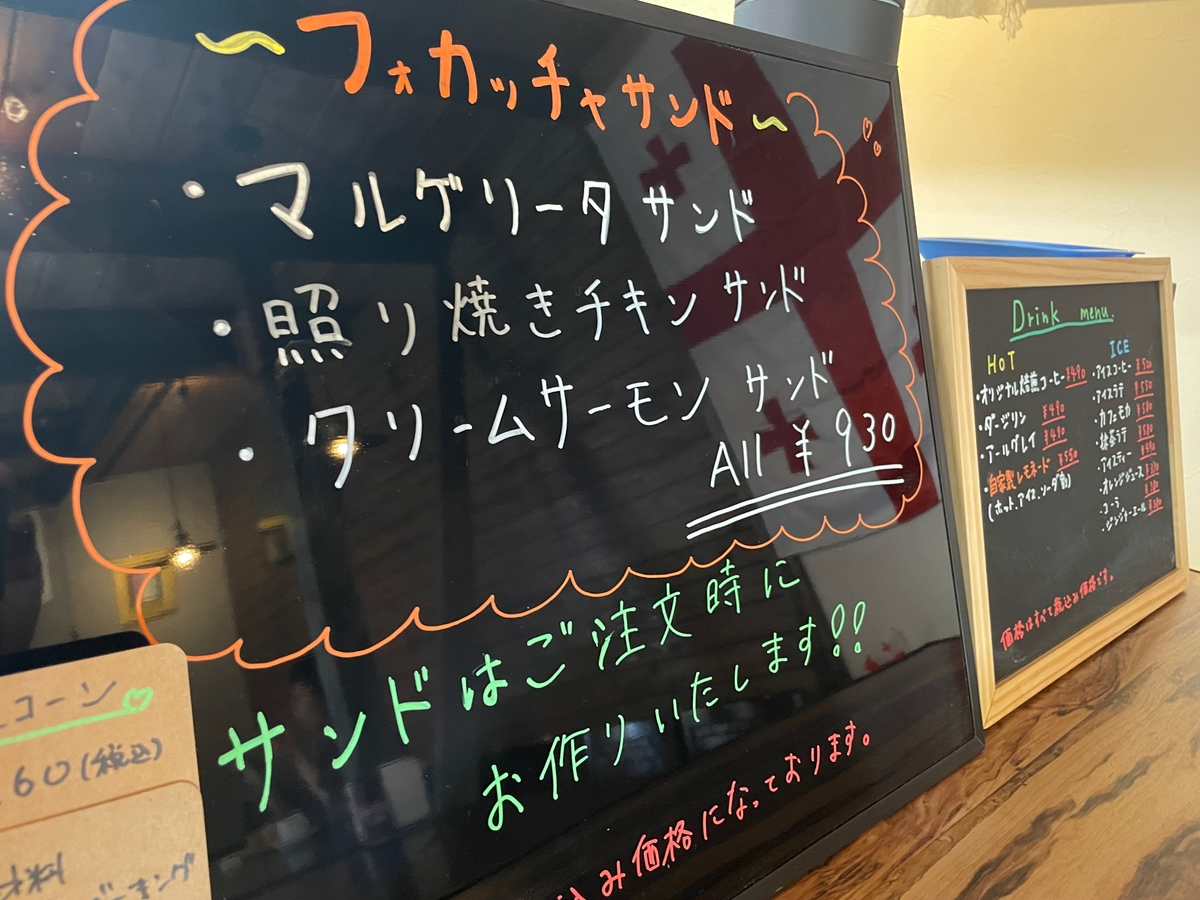 ~フォカッチャサンド~
・マルゲリータサンド
・照り焼きチキンサンド
・クリームサーモンサンド
All ¥930
サンドはご注文時に
お作りいたします!!
込み価格になっております。
コーン
60(税込)
材料
Drink menu.
HOT
・オリジナル焙煎コーヒー ¥490
・ダージリン ¥490
・アールグレイ ¥490
・自家製レモネード ¥550
(ホット、アイス、ソーダ割)
ICE
・アイスコーヒー ¥520
・アイスラテ ¥550
・カフェモカ ¥580
・抹茶ラテ ¥580
・アイスティー
・オレンジジュース
・コーラ
・ジンジャーエール
価格はすべて税込み価格です。